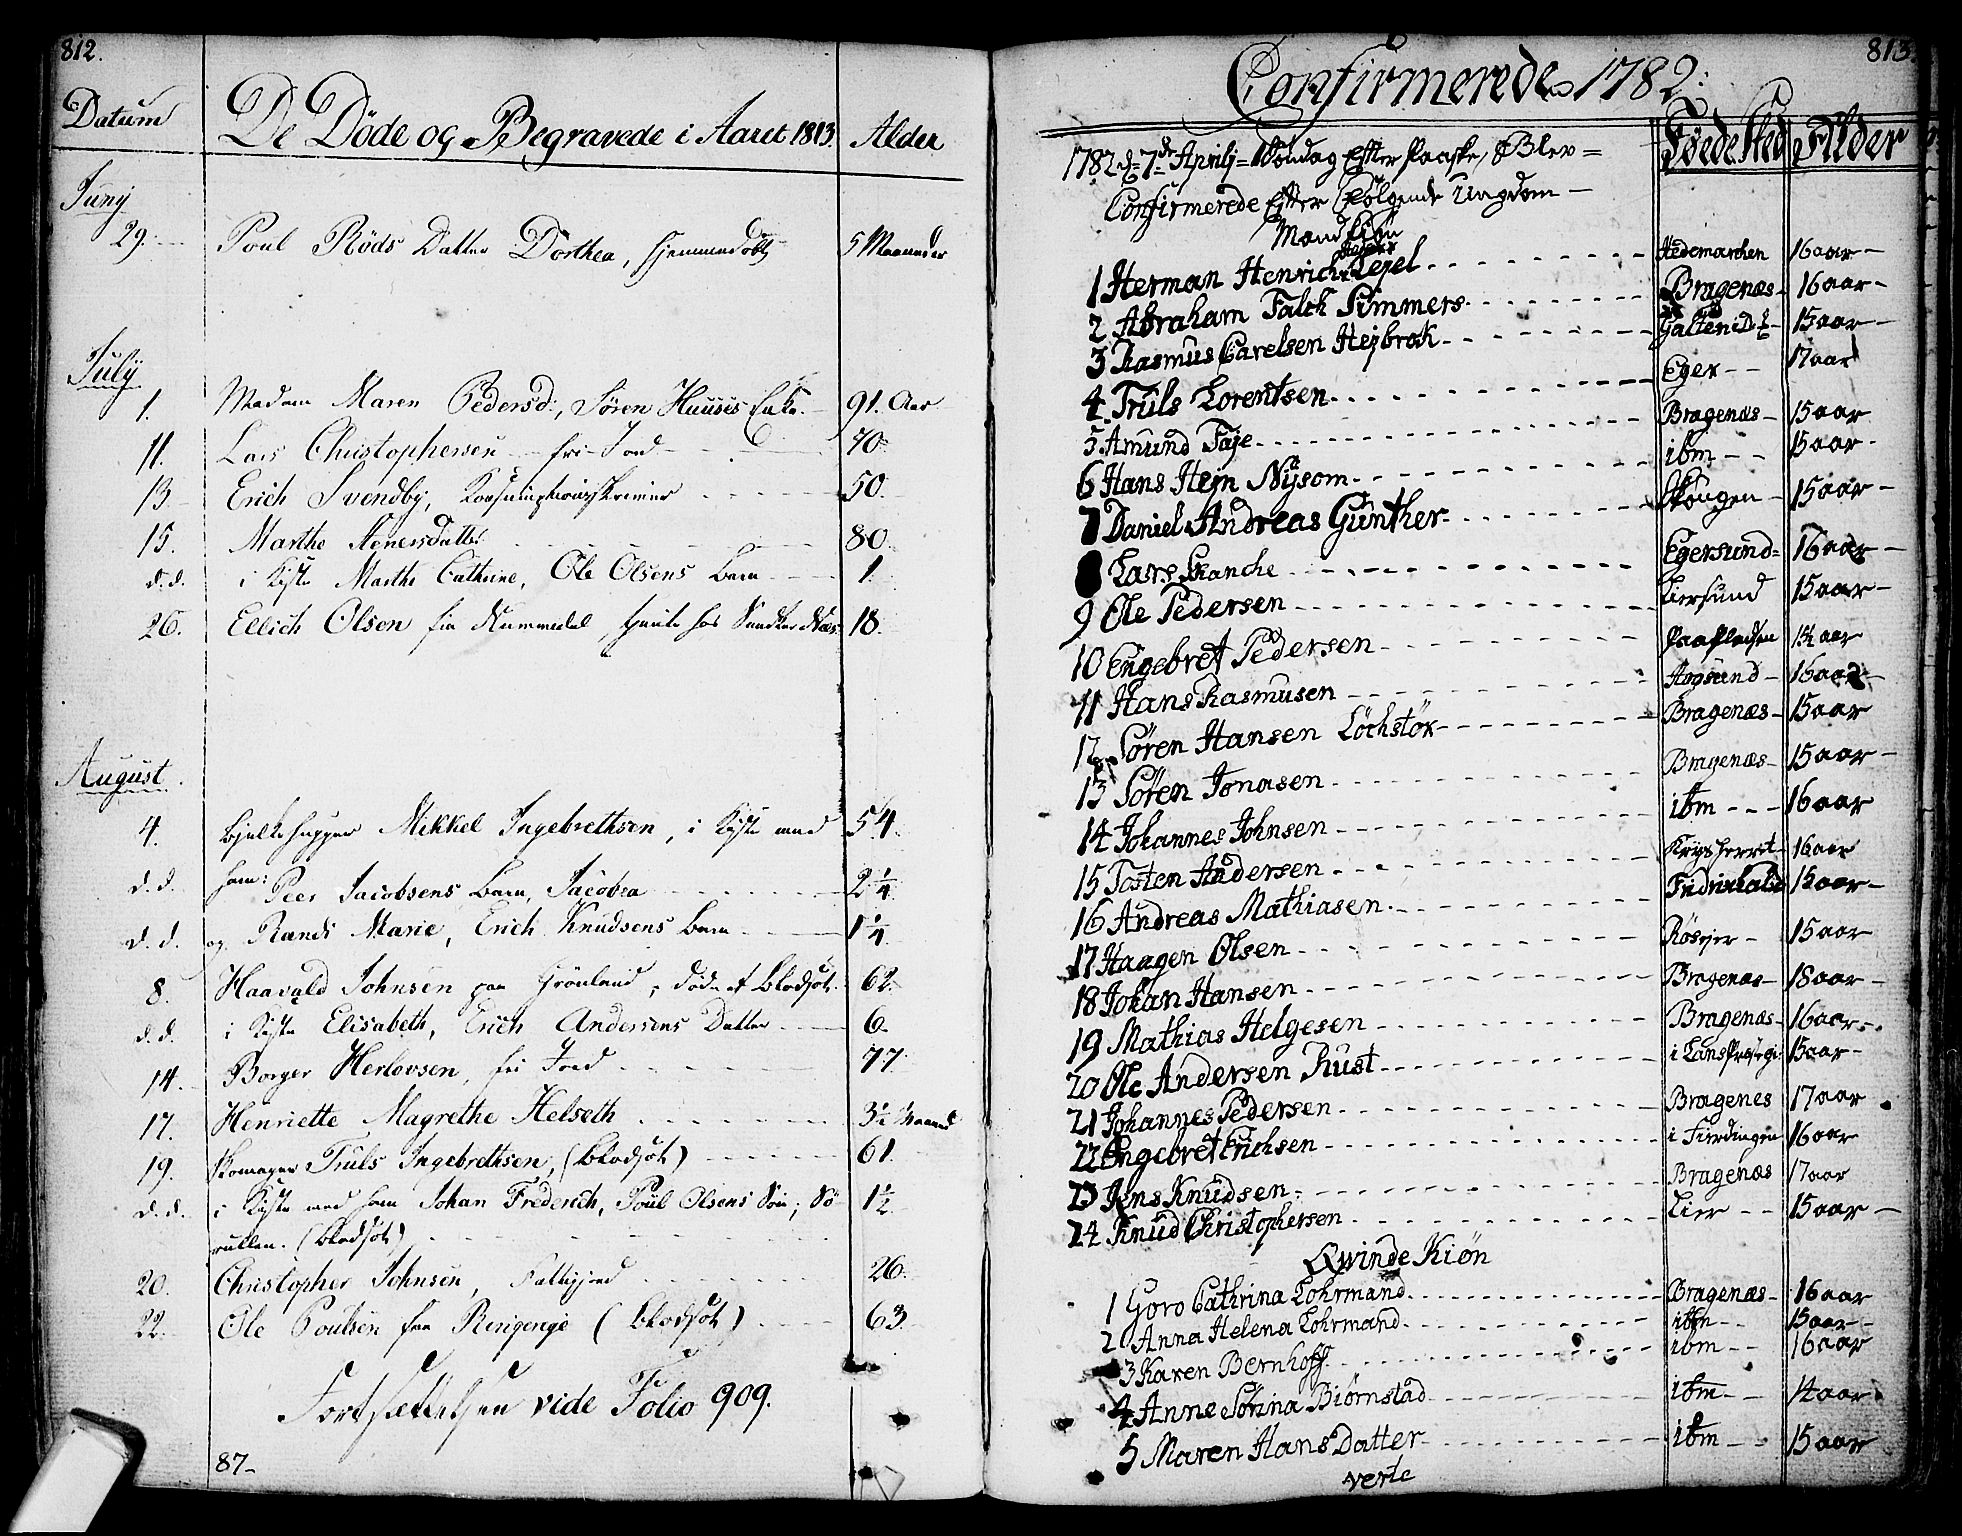 812.
Datum
De Døde og Begravede i Aaret 1813.
Alder
Juny
29. Poul Röds Datter Dorthea, hjemmedøbt 5 Maaneder
July
1. Madam Maren Pedersd:, Søren Huuses Enke. 91. Aar
11. Lars Christophersen fri Jord 70.
13. Erich Svendby, Konsumptionsskriver 50.
15. Marthe Stenersdatter 80.
d.d. i Kiste Marthe Cathrine, Ole Olsens Barn 1.
26. Ellich Olsen fra Nummedal, tjente hos 18.
August.
4. Bjelkehugger Mikkel Ingebrethsen, i Kiste med 54.
d.d. ham: Peer Jacobsens Barn, Jacobea 2 1/4
d.d. og Randi Marie, Erich Knudsens Barn 1 1/4
8. Haavald Johnsen paa Grønland, døde af Blodsot. 62.
d.d. i Kiste Elisabeth, Erich Andersens Datter 6.
14. Borger Herlovsen, fri Jord 77.
17. Henriette Magrethe Helseth 3 1/2 Maaned
19. Skomager Truls Ingebrethsen, (Blodsot) 61.
d.d. i Kiste med ham Johan Frederich, Poul Olsens Søn,
(Blodsot) 1 1/2
20. Christopher Johnsen, Fattigjord 26.
22. Ole Poulsen fra Ringerige (Blodsot) 63.
Fortsættelsen vide Folio 909.
87.
813.
Confirmerede 1782:
Føede Sted Alder
1782 d: 7de Aprilj = 1 Søndag Efter Paaske, Blev =
Confirmerede Efter Følgende Ungdom
Mand Kiøn
1 Herman Henrich Lejel Hedemarchen 16 aar
2 Abraham Falck Simmers Bragenæs 16 aar
3 Rasmus Carelsen Hejbrok 15 aar
4 Truls Lorentsen Eger 17 aar
5 Amund Faje Bragenæs 15 aar
6 Hans Hejn Nysom ibm 15 aar
7 Daniel Andreas Günther Skougen 15 aar
8 Lars Skanche Egersund 16 aar
9 Ole Pedersen Liersund 15 aar
10 Engebret Pedersen Paa Pladsen aar
11 Hans Rasmusen Hogsund 16 aar
12 Søren Hansen Löchstör Bragenæs 15 aar
13 Søren Jonasen Bragenæs 15 aar
14 Johannes Johnsen ibm 16 aar
15 Tosten Andersen Krysherret 16 aar
16 Andreas Mathiasen Fridrixhald 15 aar
17 Haagen Olsen 15 aar
18 Johan Hansen Bragenæs 18 aar
19 Mathias Helgesen Bragenæs 16 aar
20 Ole Andersen Rust 15 aar
21 Johannes Pedersen Bragenes 17 aar
22 Engebret Erichsen i Fierdingen 16 aar
23 Jens Knudsen Bragenæs 17 aar
24 Knud Christophersen Lier 15 aar
Qvinde Kiøn
1 Goro Cathrina Lohrmand Bragenæs 16 aar
2 Anna Helena Lohrmand ibm 15 aar
3 Karen Bernhoff ibm 16 aar
4 Anne Sørina Biørnstad ibm 14 aar
5 Maren HansDatter ibm 15 aar
verte